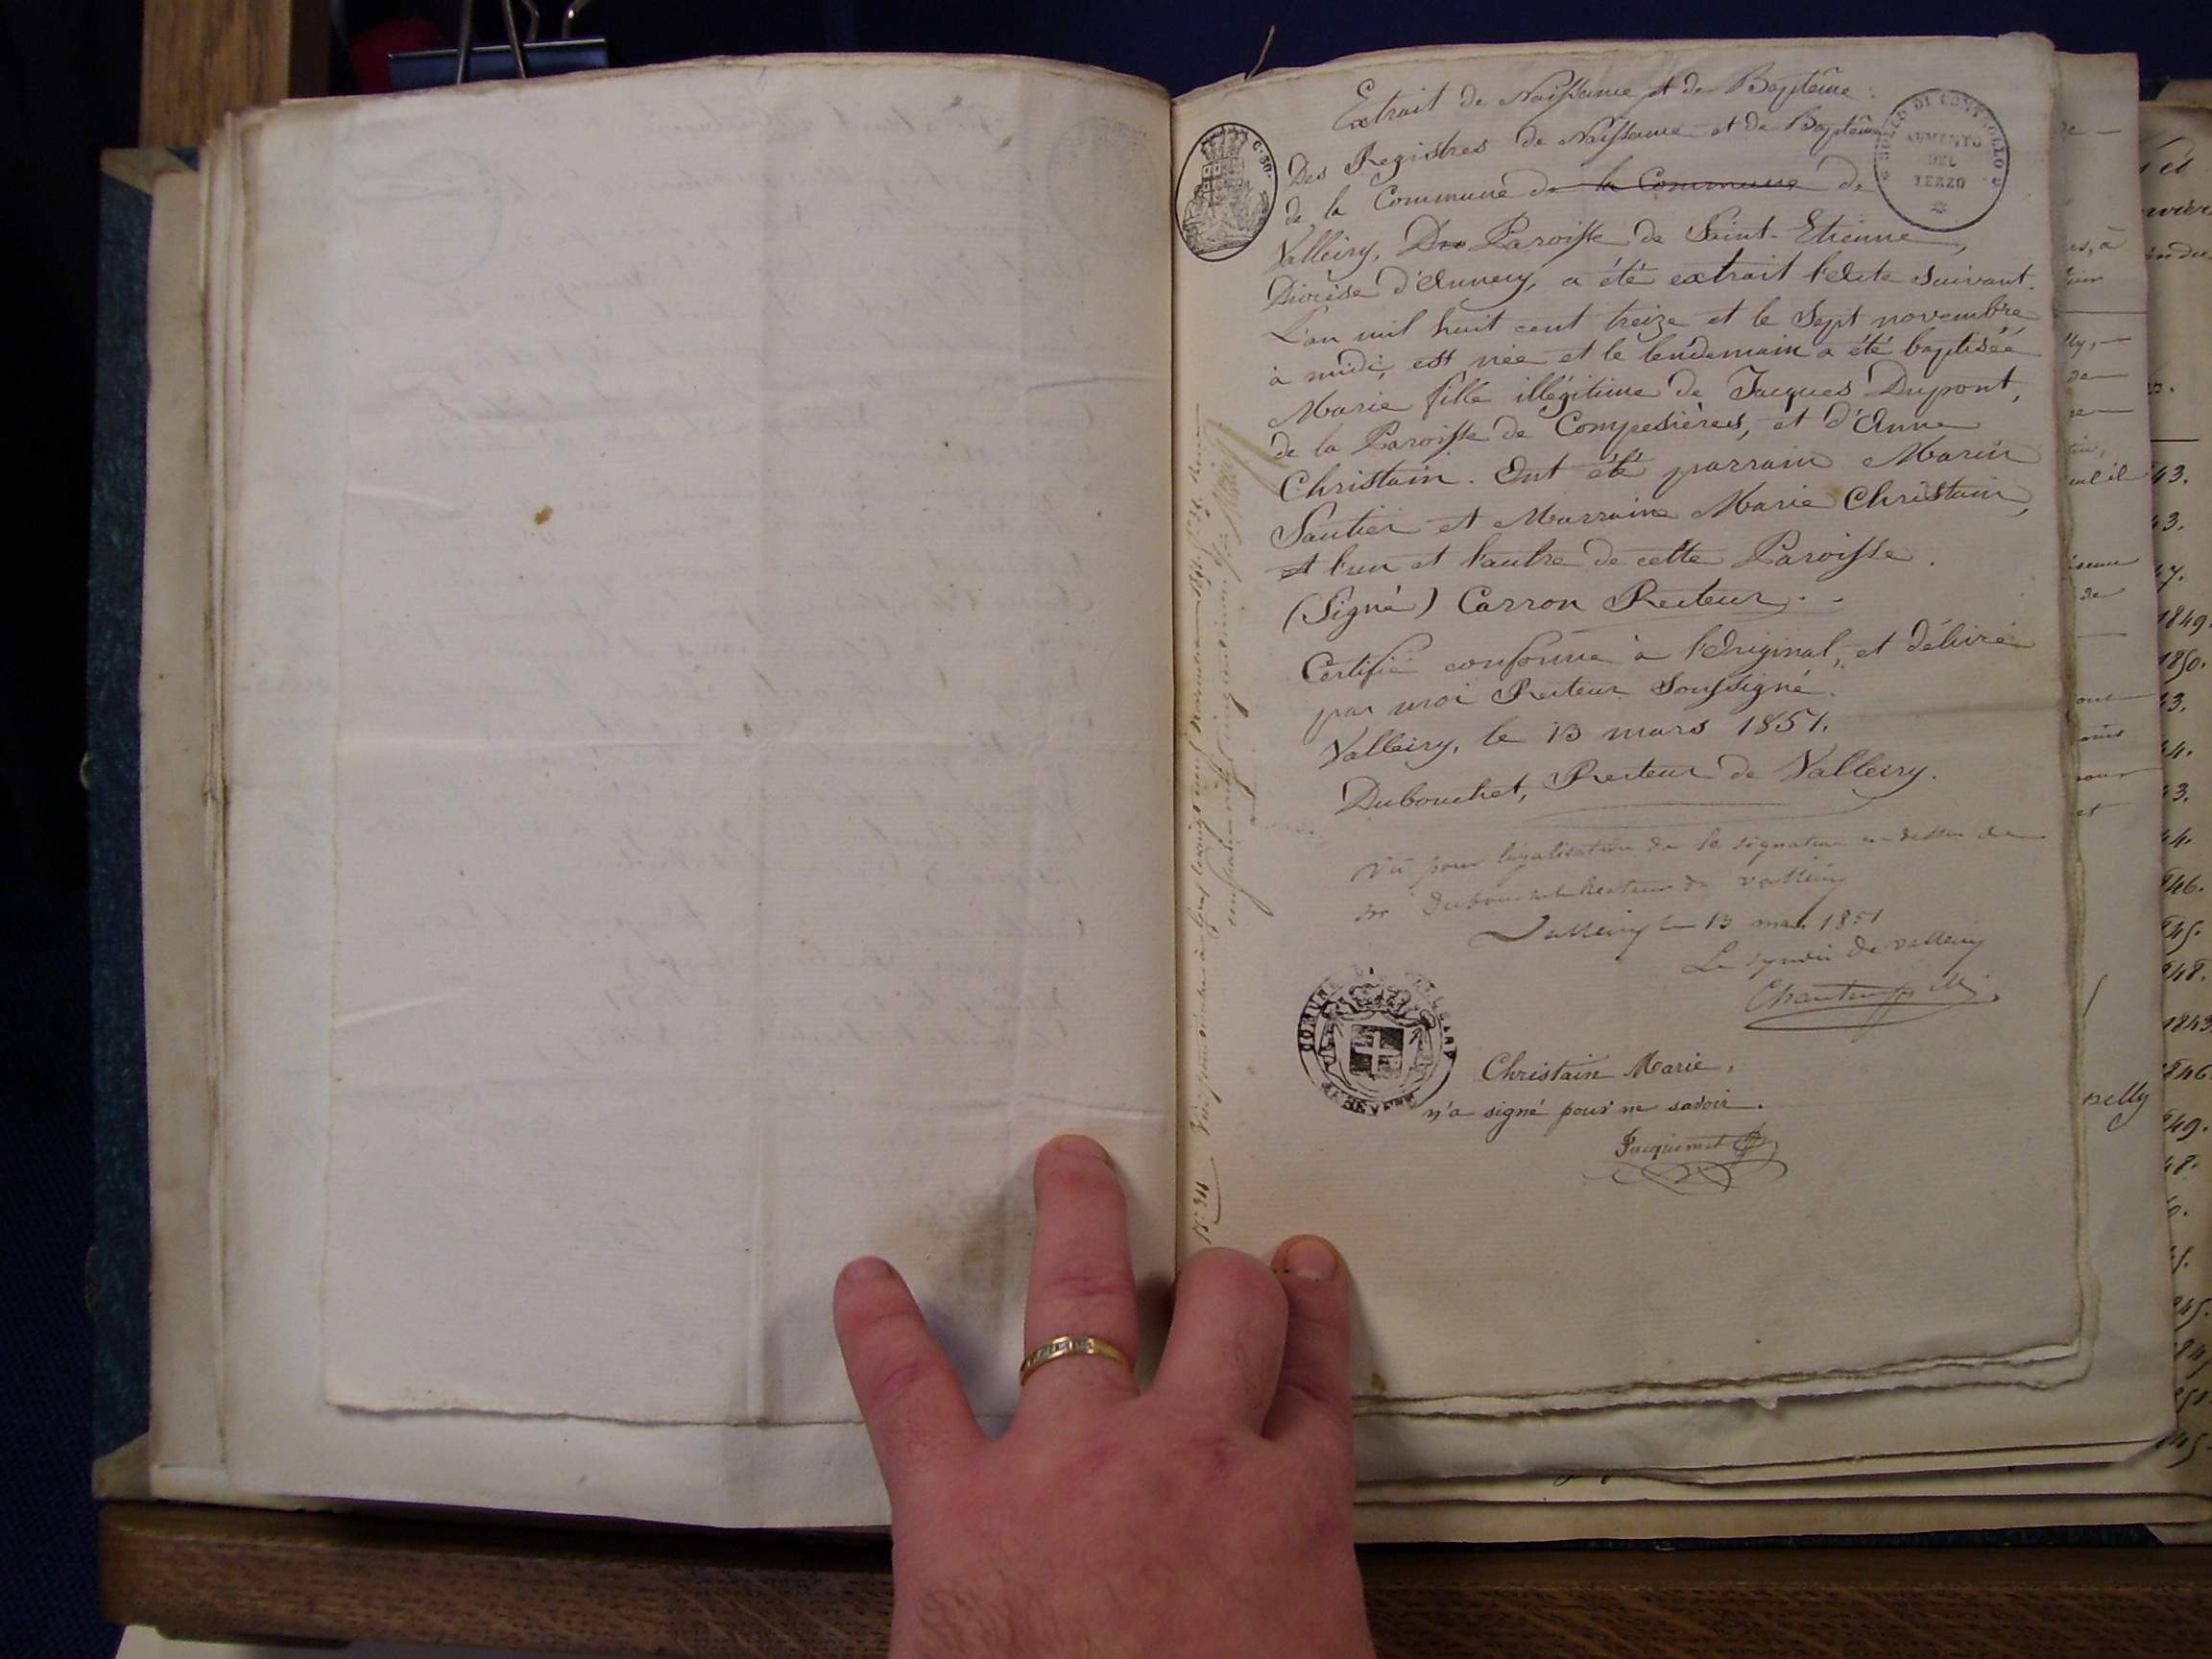 Extrait de Naissance et de Baptême.
Des Registres de Naissance et de Baptême
de la Commune de la Commune de
Valleiry, Des Paroisse de Saint-Etienne,
Diocèse d'Annecy, a été extrait l'Acte suivant.
L'an mil huit cent treize et le Sept novembre
à midi, est née et le lendemain a été baptisée
Marie fille illégitime de Jacques Dupont,
de la Paroisse de Compesières, et d'Anne
Christain. Ont été parrain Marin
Sautier et Marraine Marie Christain,
et l'un et l'autre de cette Paroisse.
(Signé) Carron Recteur.
Certifié conforme à l'Original, et délivré
par moi Recteur Soussigné.
Valleiry, le 13 mars 1851.
Dubouchet, Recteur de Valleiry.
Vu pour légalisation de la signature ci-dessus de
Dubouchet Recteur de Valleiry
Valleiry le 13 mars 1851
Le syndic de Valleiry
Christain Marie,
n'a signé pour ne savoir.
Jacquemet
C. 30.
BOLLO DI CONTROLLO
AUMENTO
DEL
TERZO
1849.
1850.
1843